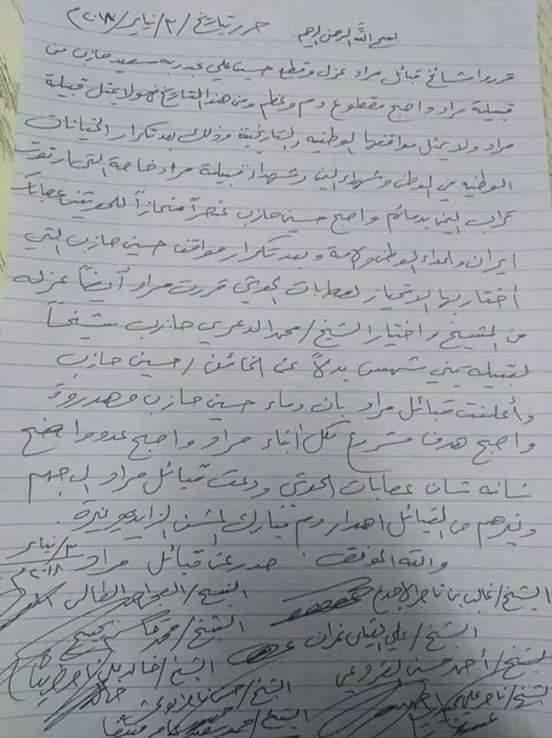 بسم الله الرحمن الرحيم حرر بتاريخ /٣/ يناير/ ٢٠١٨
قررت مشائخ قبائل مراد عزل وقطع حسين علي عبدربه سعيد حازب من
قبيلة مراد واصبح مقطوع دم وعظم ومن هذا التاريخ فهو لا يمثل قبيلة
مراد ولا يمثل مواقفها الوطنيه والتاريخية وذلك بعد تكرار الخيانات
الوطنيه في الوطن وشهداء اليمن وشهداء قبيلة مراد خاصة التي ارتوت
تراب اليمن بدمائهم واصبح حسين حازب عنصراً منحازاً للحوثيين عصابات
ايران واعداء الوطن والامة وبعد تكرار مواقف حسين حازب التي
أختار بها الانحياز لعصابات الحوثي قررت مراد أيضاً عزله
من المشيخ واختيار الشيخ/ محمد الدعري حازب شيخاً
لقبيله بني شمس بدلاً عن الخائن / حسين حازب
وأعلنت قبائل مراد بان دماء حسين حازب مهدروة
واصبح هدف مشروع لكل أبناء مراد واصبح عدو واضح
شانه شان عصابات الحوثي ودعت قبائل مراد
وغيرهم من القبائل اهدار دم
والله الموفق صدر عن قبائل مراد ٣/ يناير
٢٠١٨م
الشيخ/ غالب بن ناصر الاجدع الشيخ/
الشيخ/ علي القبلي نمران الشيخ/
الشيخ/ أحمد حسين الشيخ/
الشيخ/ ناصر علي الشيخ/ حسين
الشيخ/